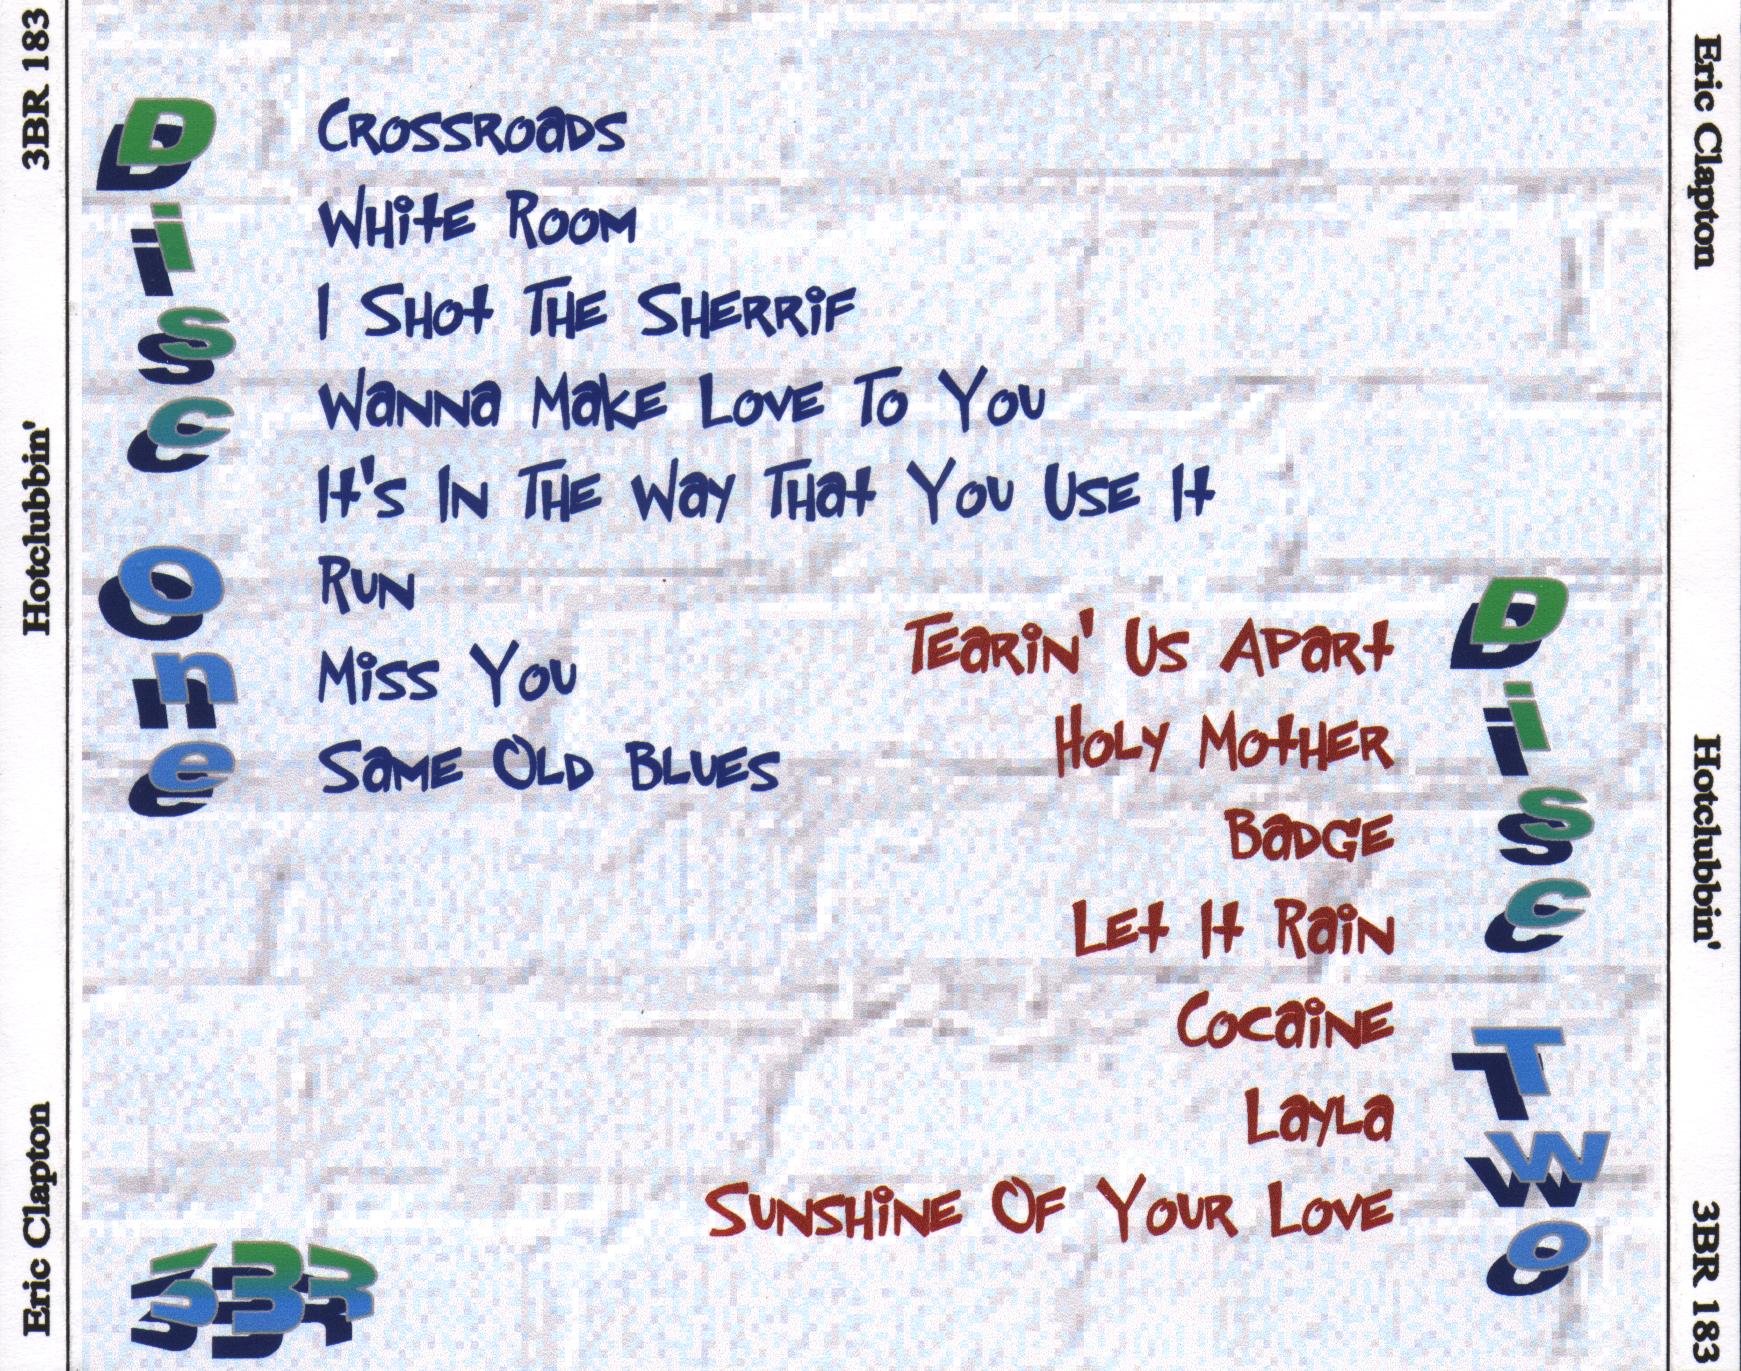 3BR 183
Hotclubbin'
Eric Clapton
Disc One
Crossroads
White Room
I Shot The Sherrif
Wanna Make Love To You
It's In The Way That You Use It
Run
Miss You
Same Old Blues
Disc Two
Tearin' Us Apart
Holy Mother
Badge
Let It Rain
Cocaine
Layla
Sunshine Of Your Love
3BR
Eric Clapton
Hotclubbin'
3BR 183